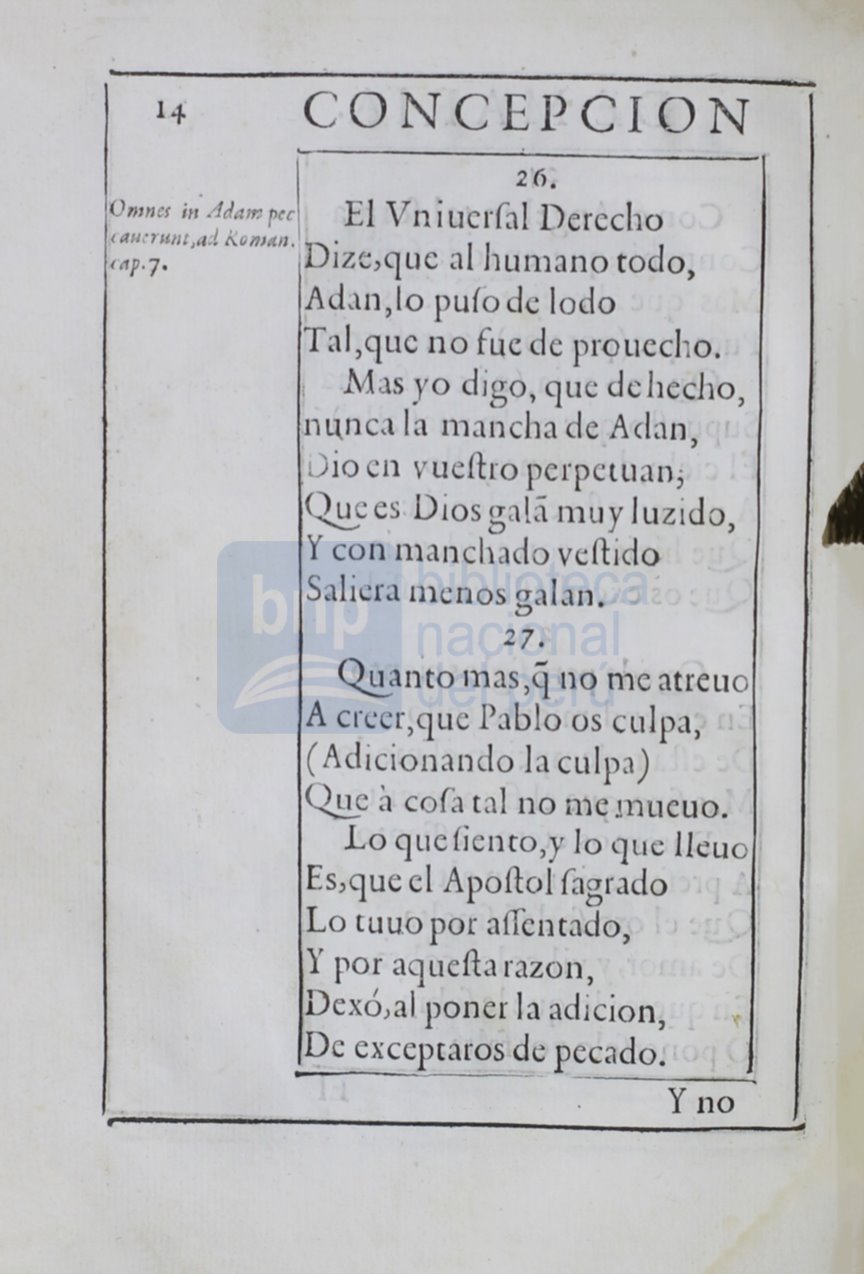 14 CONCEPCION
26.
Omnes in Adam pec
cauerunt,ad Roman.
cap.7.
El Vniuerſal Derecho
Dize,que al humano todo,
Adan,lo puſo de lodo
Tal,que no fue de prouecho.
Mas yo digo, que de hecho,
nunca la mancha de Adan,
Dio en vueſtro perpetuan;
Que es Dios galã muy luzido,
Y con manchado veſtido
Saliera menos galan.
27.
Quanto mas,q̃ no me atreuo
A creer,que Pablo os culpa,
(Adicionando la culpa)
Que à coſa tal no me mueuo.
Lo que ſiento,y lo que lleuo
Es,que el Apoſtol ſagrado
Lo tuuo por aſſentado,
Y por aqueſta razon,
Dexó,al poner la adicion,
De exceptaros de pecado.
Y no
bnp biblioteca
nacional
del perú